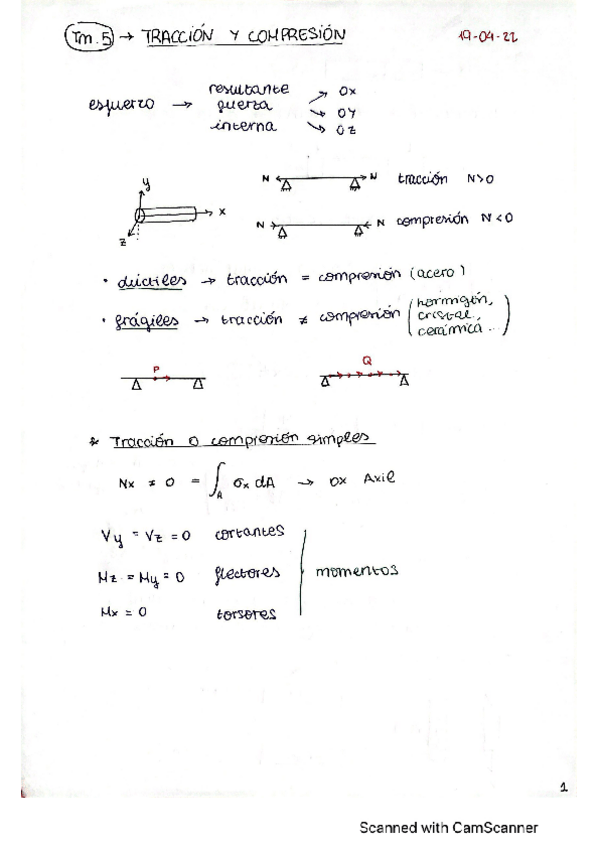 Tm.5 → TRACCIÓN Y COMPRESIÓN 19-04-22
esfuerzo → resultante fuerza interna
OX
OY
OZ
y
x
z
N N tracción N>0
N N compresión N<0
• dúctiles → tracción = compresión (acero)
• frágiles → tracción ≠ compresión (hormigón, cristal, cerámica...)
P
Q
* Tracción o compresión simples
Nx ≠ 0 = ∫A σx dA → OX Axil
Vy = Vz = 0 cortantes
Mz = My = 0 flectores momentos
Mx = 0 torsores
1
Scanned with CamScanner